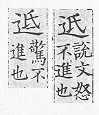 䢑
說文怒
不進也
䢑
驚不
進也